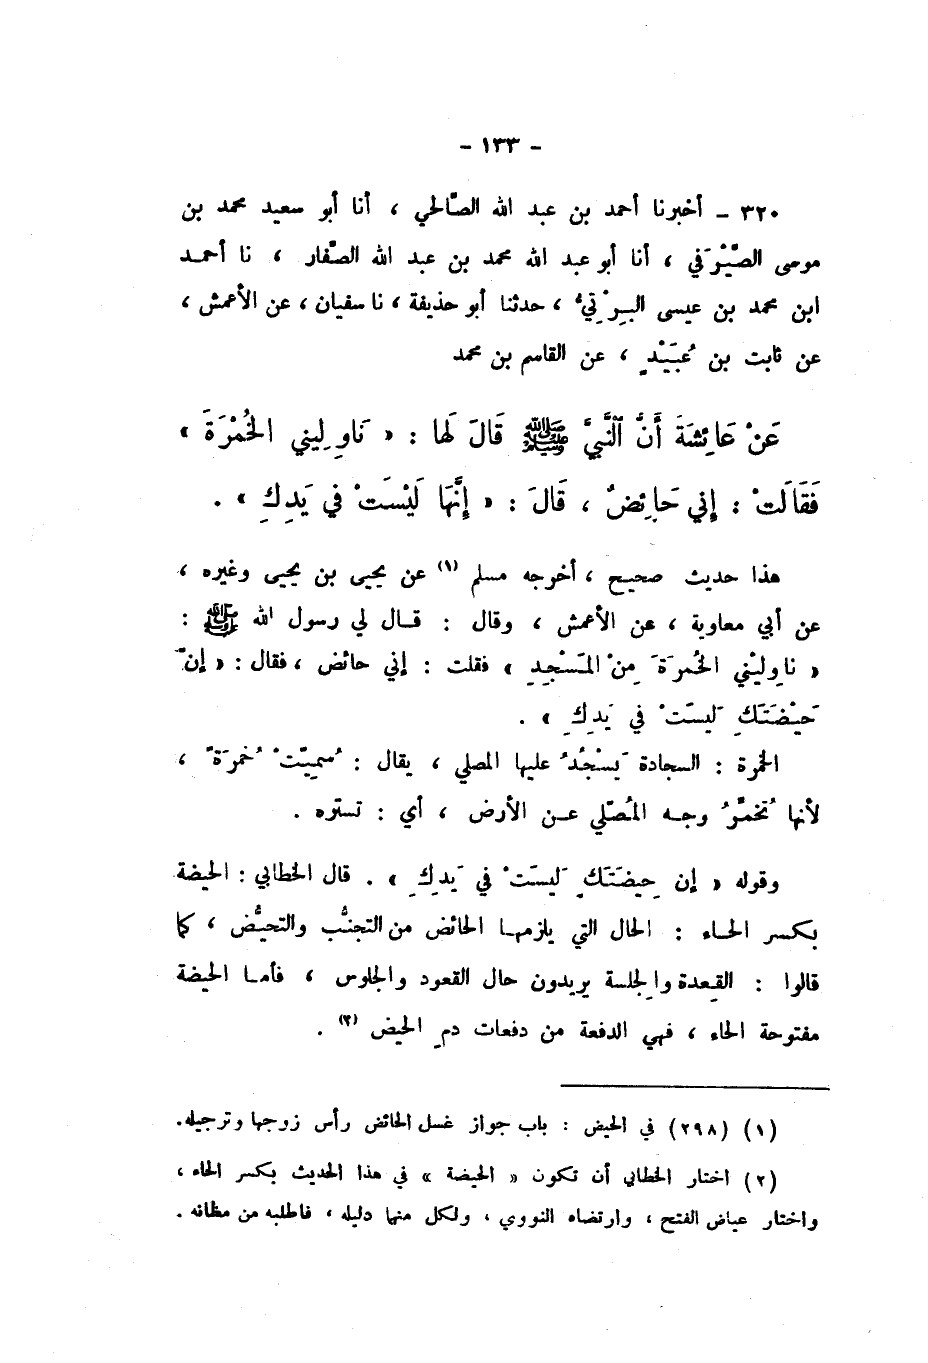 - ١٣٣ -
٣٢٠ - أخبرنا أحمد بن عبد الله الصّالحي ، أنا أبو سعيد محمد بن
موسى الصَّيْرَفي ، أنا أبو عبد الله محمد بن عبد الله الصَّفار ، نا أحمد
ابن محمد بن عيسى البِرْتيُّ ، حدثنا أبو حذيفة ، نا سفيان ، عن الأعمش ،
عن ثابت بن عُبَيْدٍ ، عن القاسم بن محمد
عَنْ عَائِشَةَ أَنَّ ٱلنَّبِيَّ ﷺ قَالَ لَهَا : « نَاوِلِيني الْخُمْرَةَ »
فَقَالَتْ : إِنِّي حَائِضٌ ، قَالَ : « إِنَّهَا لَيْسَتْ فِي يَدِكِ » .
هذا حديث صحيح ، أخرجه مسلم (١) عن يحيى بن يحيى وغيره ،
عن أبي معاوية ، عن الأعمش ، وقال : قال لي رسول الله ﷺ :
« ناوِليْني الخُمرَةَ مِنْ المَسْجِدِ » فقلت : إني حائض ، فقال : « إنّ
حَيْضَتَكِ لَيسَتْ في يَدِكِ » .
الخمرة : السجادة يَسْجُدُ عليها المصلي ، يقال : سُميِّتْ خُمرَةً ،
لأنها تُخمِّرُ وجه المُصلّي عن الأرض ، أي : تستره .
وقوله « إن حِيضَتَكِ لَيسَتْ في يَدِكِ » . قال الخطابي : الحيضة
بكسر الحاء : الحال التي يلزمها الحائض من التجنُّب والتحيُّض ، كما
قالوا : القِعدة والجِلسة يريدون حال القعود والجلوس ، فأما الحيضة
مفتوحة الحاء ، فهي الدفعة من دفعات دمِ الحيض (٢) .
(١) (٢٩٨) في الحيض : باب جواز غسل الحائض رأس زوجها وترجيله.
(٢) اختار الخطابي أن تكون « الحيضة » في هذا الحديث بكسر الحاء ،
واختار عياض الفتح ، وارتضاه النووي ، ولكل منهما دليله ، فاطلبه من مظانه .